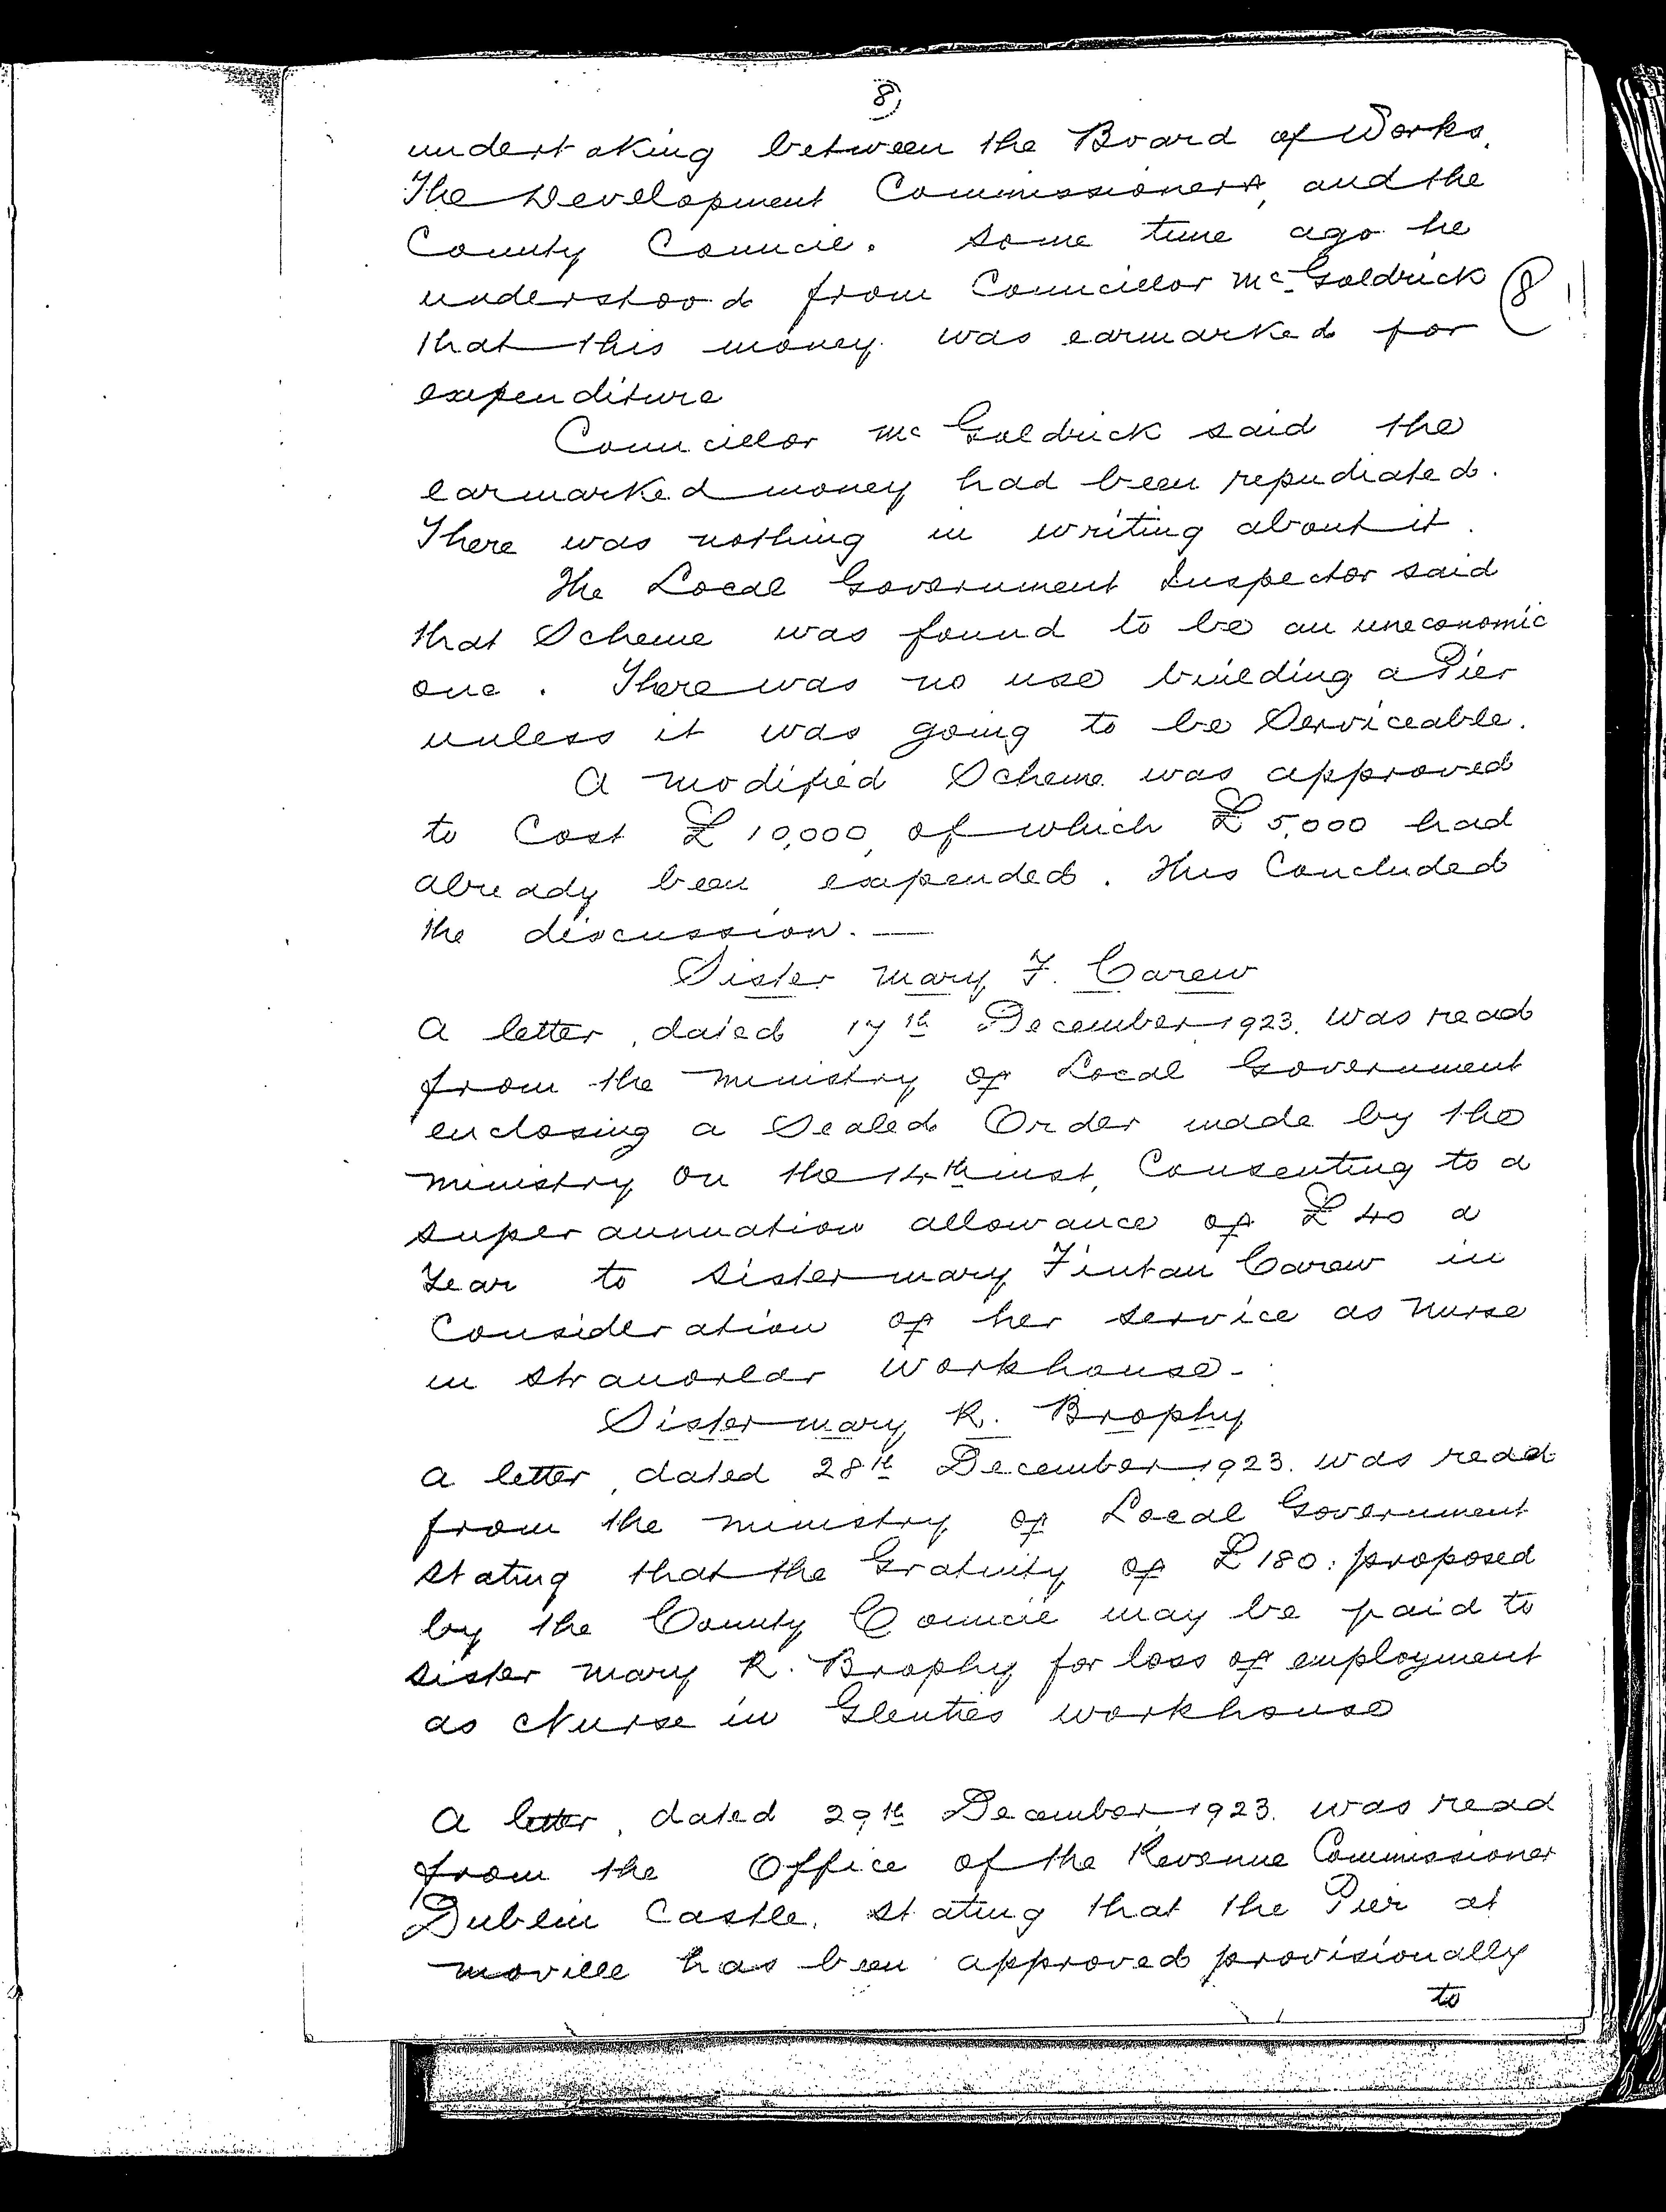 8)
undertaking between the Board of Works.
The Development Commissioners, and the
County Council. Some time ago he
understood from Councillor McGoldrick
8
that this money was earmarked for
expenditure
Councillor McGoldrick said the
earmarked money had been repudiated.
There was nothing in writing about it.
The Local Government Inspector said
that Scheme was found to be an uneconomic
one. There was no use building a Pier
unless it was going to be Serviceable.
A modified Scheme was approved
to Cost £10,000, of which £5,000 had
already been expended. This Concluded
the discussion. —
Sister Mary F. Carew
A letter, dated 17th December, 1923. was read
from the Ministry of Local Government
enclosing a Sealed Order made by the
Ministry on the 14th inst, Consenting to a
superannuation allowance of £40 a
Year to Sister Mary Fintan Carew in
Consideration of her service as Nurse
in Stranorlar Workhouse.
Sister Mary R. Brophy
A letter, dated 28th December, 1923. was read
from the Ministry of Local Government
stating that the Gratuity of £180: proposed
by the County Council may be paid to
Sister Mary R. Brophy for loss of employment
as Nurse in Glenties workhouse
A letter, dated 29th December, 1923. was read
from the Office of the Revenue Commissioner
Dublin Castle, stating that the Pier at
Moville has been approved provisionally
to